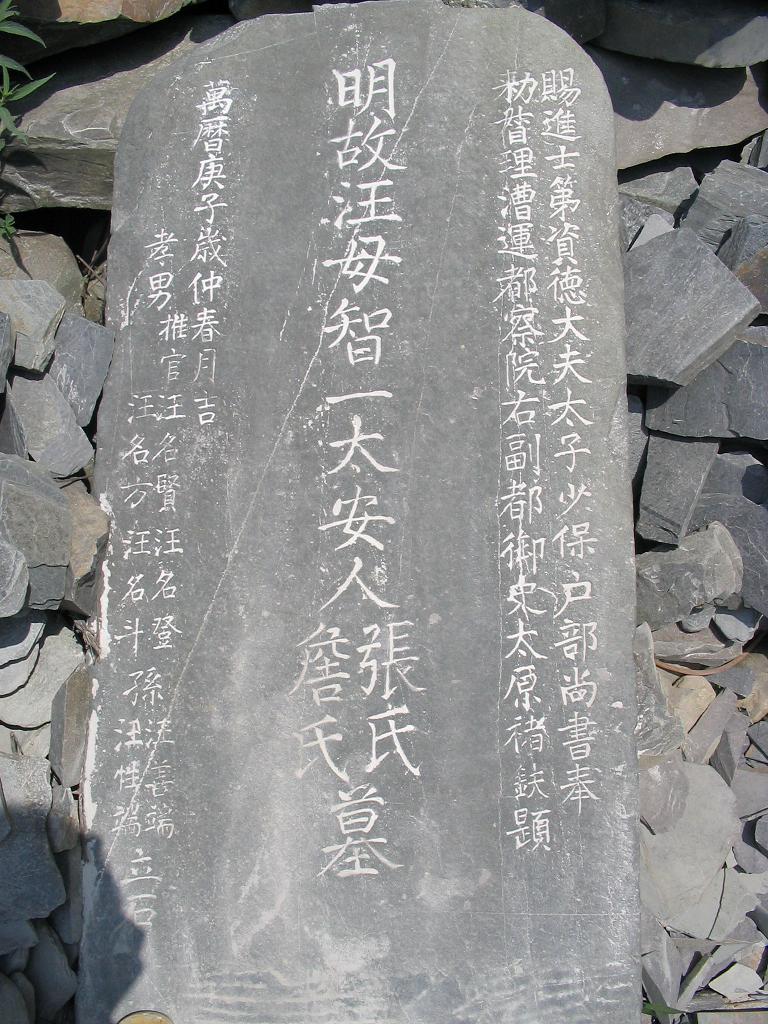 賜進士第資德大夫太子少保户部尚書奉
勑督理漕運都察院右副都御史太原褚鈇題
明故汪母智一太安人張氏詹氏墓
萬曆庚子歲仲春月吉
孝男推官汪名賢汪名登孫汪善端
汪名方汪名斗汪性端立石